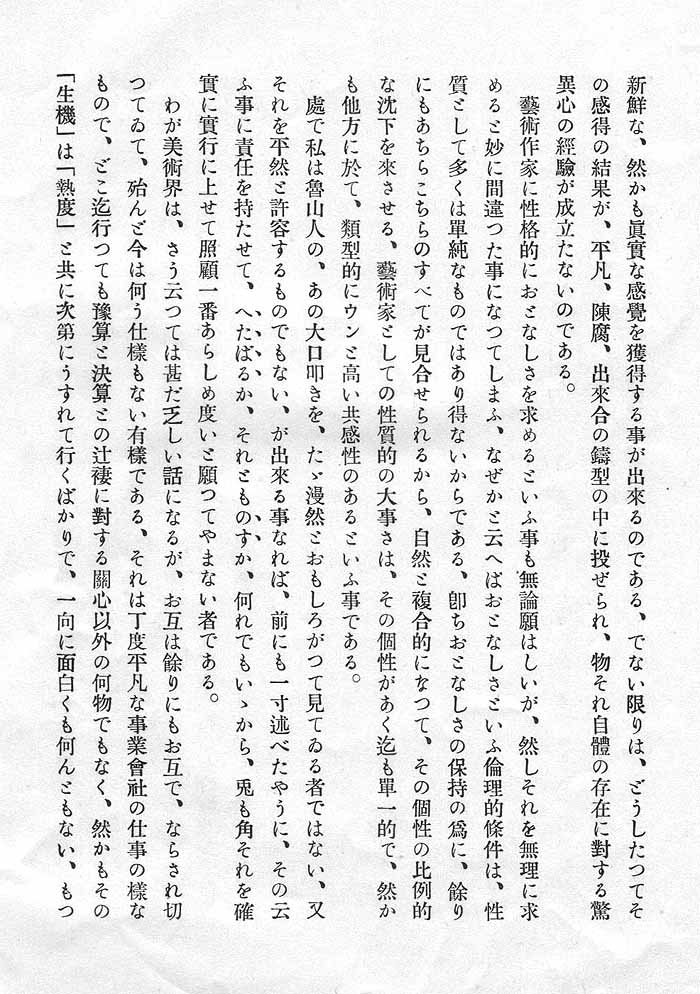 新鮮な、然かも眞實な感覺を獲得する事が出來るのである、でない限りは、どうしたつてそ
の感得の結果が、平凡、陳腐、出來合の鑄型の中に投ぜられ、物それ自體の存在に對する驚
異心の經驗が成立たないのである。
藝術作家に性格的におとなしさを求めるといふ事も無論願はしいが、然しそれを無理に求
めると妙に間違つた事になつてしまふ、なぜかと云へばおとなしさといふ倫理的條件は、性
質として多くは單純なものではあり得ないからである、卽ちおとなしさの保持の爲に、餘り
にもあちらこちらのすべてが見合せられるから、自然と複合的になつて、その個性の比例的
な沈下を來させる、藝術家としての性質的の大事さは、その個性があく迄も單一的で、然か
も他方に於て、類型的にウンと高い共感性のあるといふ事である。
處で私は魯山人の、あの大口叩きを、たゞ漫然とおもしろがつて見てゐる者ではない、又
それを平然と許容するものでもない、が出來る事なれば、前にも一寸述べたやうに、その云
ふ事に責任を持たせて、へたばるか、それとものすか、何れでもいゝから、兎も角それを確
實に實行に上せて照顧一番あらしめ度いと願つてやまない者である。
わが美術界は、さう云つては甚だ乏しい話になるが、お互は餘りにもお互で、ならされ切
つてゐて、殆んど今は何う仕樣もない有樣である、それは丁度平凡な事業會社の仕事の樣な
もので、どこ迄行つても豫算と決算との辻褄に對する關心以外の何物でもなく、然かもその
「生機」は「熱度」と共に次第にうすれて行くばかりで、一向に面白くも何んともない、もつ